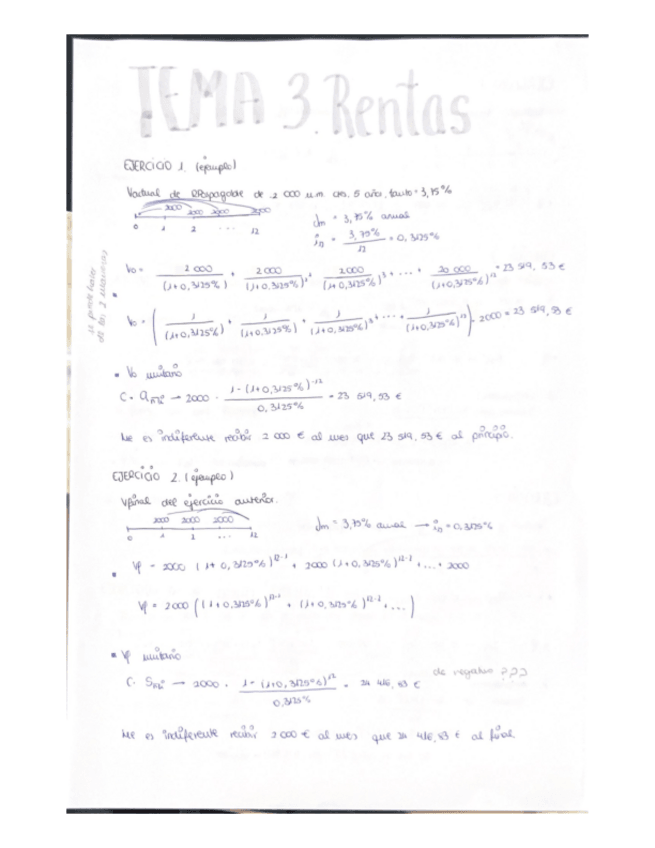 TEMA 3. Rentas
EJERCICIO 1. (ejemplo)
Vactual de postpagable de 2 000 u.m. 5 año, tanto = 3,75%
2000 2000 2000 2000
0 1 2 ... 12
Jm = 3,75% anual
i12 = 3,75% / 12 = 0,3125%
V0 = 2 000 / (1+0,3125%) + 2 000 / (1+0,3125%)² + 2000 / (1+0,3125%)³ + ... + 20 000 / (1+0,3125%)¹² = 23 519,53 €
V0 = ( 1 / (1+0,3125%) + 1 / (1+0,3125%) + 1 / (1+0,3125%)³ + ... + 1 / (1+0,3125%)¹² ) · 2000 = 23 519,53 €
se puede hacer de las 2 maneras
• V0 unitario
C · a → 2000 · 1 - (1+0,3125%)⁻¹² / 0,3125% = 23 519,53 €
Me es indiferente recibir 2 000 € al mes que 23 519,53 € al principio.
EJERCICIO 2. (ejemplo)
Vfinal del ejercicio anterior.
2000 2000 2000
0 1 2 ... 12
Jm = 3,75% anual → i12 = 0,3125%
• Vf = 2000 (1+0,3125%)¹²⁻¹ + 2000 (1+0,3125%)¹²⁻² + ... + 2000
Vf = 2000 ((1+0,3125%)¹²⁻¹ + (1+0,3125%)¹²⁻² + ...)
• Vf unitario
C · S → 2000 · 1 - (1+0,3125%)¹² / 0,3125% = 24 416,53 €
da negativo ???
Me es indiferente recibir 2 000 € al mes que 24 416,53 € al final.